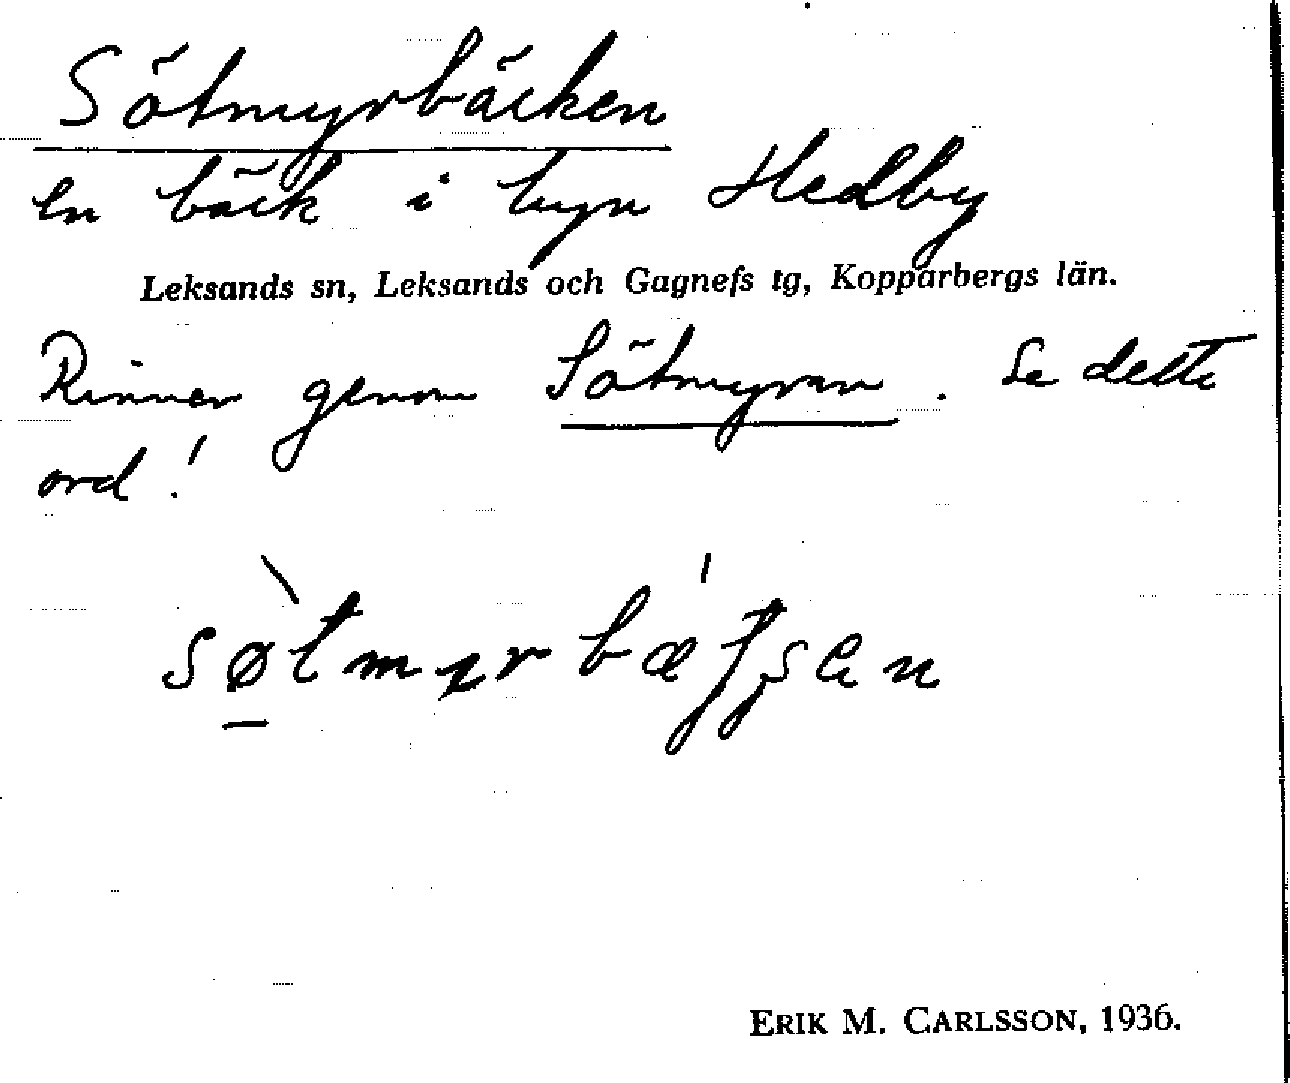 Sötmyrbäcken
en bäck i byn Hedby
Leksands sn, Leksands och Gagnefs tg, Kopparbergs län.
Rinner genom Sötmyran. Se detta
ord!
ERIK M. CARLSSON, 1936.